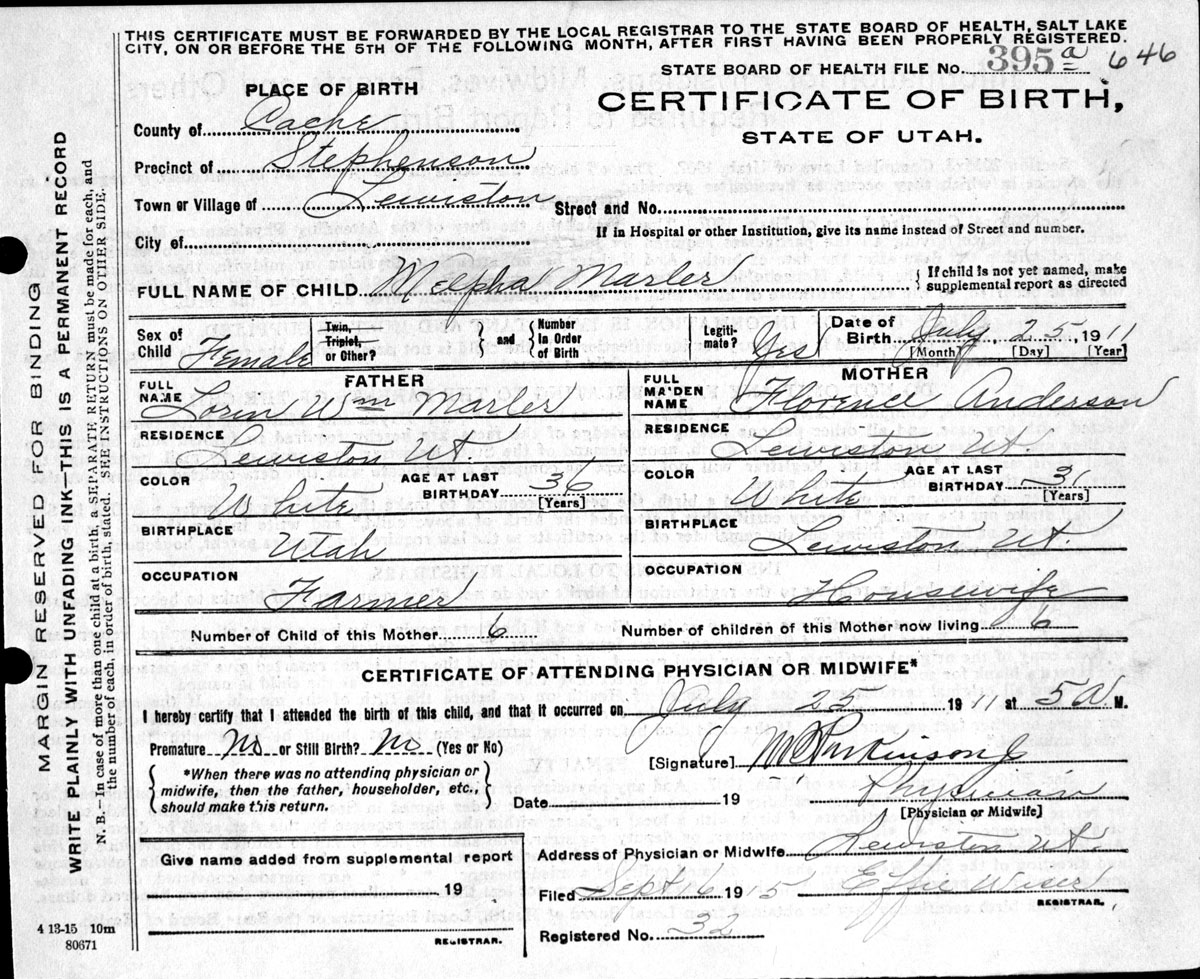 THIS CERTIFICATE MUST BE FORWARDED BY THE LOCAL REGISTRAR TO THE STATE BOARD OF HEALTH, SALT LAKE
CITY, ON OR BEFORE THE 5TH OF THE FOLLOWING MONTH, AFTER FIRST HAVING BEEN PROPERLY REGISTERED.
STATE BOARD OF HEALTH FILE No. 395 a 646
PLACE OF BIRTH
CERTIFICATE OF BIRTH,
STATE OF UTAH.
County of Cache
Precinct of Stephenson
Town or Village of Lewiston Street and No.
If in Hospital or other Institution, give its name instead of Street and number.
City of
FULL NAME OF CHILD Melpha Marler { If child is not yet named, make supplemental report as directed
Sex of Child Female Twin, Triplet, or Other? } and { Number In Order of Birth Legiti-mate? Yes Date of Birth July 25, 1911
[Month] [Day] [Year]
FATHER
FULL NAME Lorin Wm Marler
RESIDENCE Lewiston Ut.
COLOR White AGE AT LAST BIRTHDAY 36 [Years]
BIRTHPLACE Utah
OCCUPATION Farmer
MOTHER
FULL MAIDEN NAME Florence Anderson
RESIDENCE Lewiston Ut.
COLOR White AGE AT LAST BIRTHDAY 31 [Years]
BIRTHPLACE Lewiston Ut.
OCCUPATION Housewife
Number of Child of this Mother 6 Number of children of this Mother now living 6
CERTIFICATE OF ATTENDING PHYSICIAN OR MIDWIFE*
I hereby certify that I attended the birth of this child, and that it occurred on July 1911 at 5 A. M.
Premature No or Still Birth? No (Yes or No)
[Signature] Parkinson
{ *When there was no attending physician or midwife, then the father, householder, etc., should make this return. }
Date 19 Physician
[Physician or Midwife]
Give name added from supplemental report
19
REGISTRAR.
Address of Physician or Midwife Lewiston Ut.
Filed Sept 6 1915 Effie Wiser
REGISTRAR.
Registered No. 32
4 13-15 10m
80671
MARGIN RESERVED FOR BINDING
WRITE PLAINLY WITH UNFADING INK—THIS IS A PERMANENT RECORD
N. B.—In case of more than one child at a birth, a SEPARATE RETURN must be made for each, and
the number of each, in order of birth, stated. SEE INSTRUCTIONS ON OTHER SIDE.